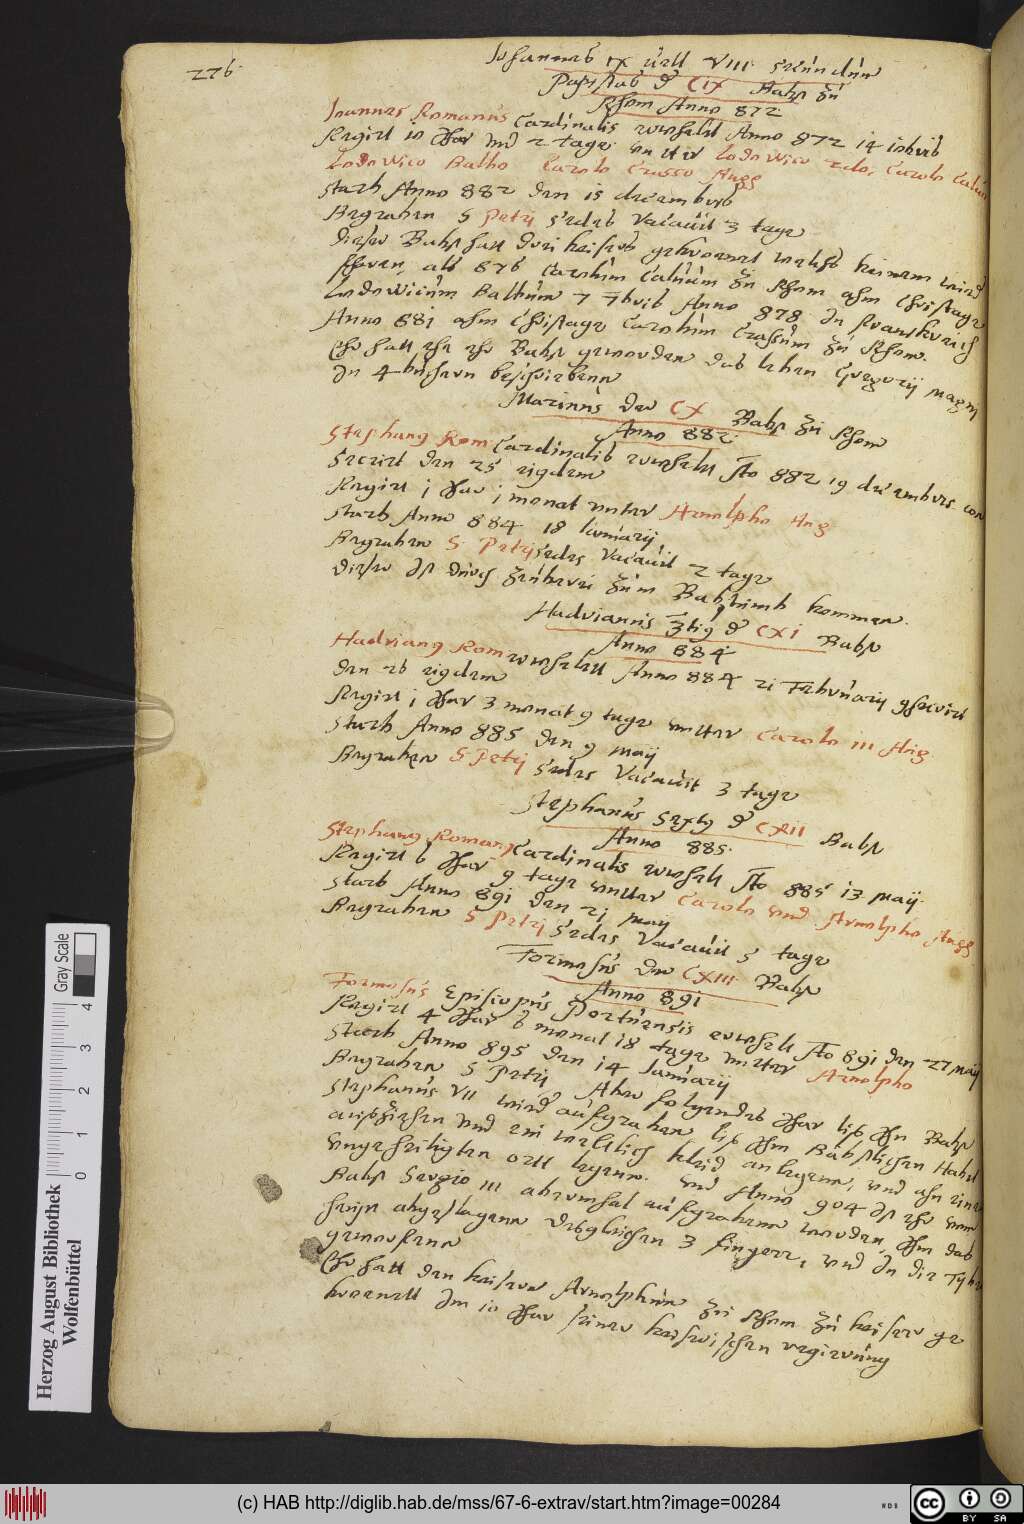 276.
Johannes IX vell VIII secundum
Papistas d CIX Babst zu
Rhom Anno 872
Joannes Romanus Cardinalis erwehelt Anno 872 14 
Regirt 10 Jhar und 2 tage unter Lodovico 2do, Carolo Calvo
Lodovico Balbo Carolo Crasso Augg
starb Anno 882 den 15 decembris
Begraben S Petrj sedes Vacauit 3 tage
Dieser Babst hatt drei keisers gekroenet welchs keinem wird
 als 876 Carolum Caluum zu Rhom ahm Christage
Lodowicum Balbum 7 7bris Anno 878 In Franckreich
Anno 881 ahm Christage Carolum Crassum zu Rhom.
Ehr hatt ehe ehr Babst geworden das leben Gregorij magni
In 4 buchern beschriebenn
Marinus der CX Babst zu Rhom
Anno 882
Stephang Rom Cardinalis erwehelt Ao 882 19 decembris con
secrirt den 25 eigdem
Regirt j Jhar j monat unter Arnolpho Aug
starb Anno 884 18 Januarij
Begraben S. Petrj sedes Vacauit 2 tage
Dieser Ist durch zum Babstumb kommen.
Hadrianus 3tig d CXI Babst
Anno 884
Hadriang Rom erwehelett Anno 884 21 Februarij
den 26 eigdem
Regirt j Jhar 3 monat 9 tage unter Carolo III Aug
starb Anno 885 den 9 Maij
Begraben S Petrj sedes Vacauit 3 tage
Stephanus Sextg d CXII Babst
Anno 885.
Stephang Romang Cardinalis erwehelt Ao 885 13 Maij
Regirt 6 Jhar 9 tage untter Carolo und Arnolpho Augg
starb Anno 891 den 21 may
Begraben S Petrj sedes Vacauit 5 tage
Formosus der CXIII Babst
Anno 891
Formosus Episcopus Portuensis erwehelt Ao 891 den 27 Maij
Regirt 4 Jhar 6 monat 18 tage untter Arnolpho
starb Anno 895 den 14 Januarij
Begraben S Petrj Aber folgendes Jhar lis Ihn Babst
Stephanus VII wider aufgraben lis Ihm Babstlichen Habit
ausziehen und ein weltlich kleid anlegenn, und ahn einen
ungeheiligten ortt legenn. und Anno 904 Ist ehr vom
Babst Sergio III abermhal aufgrabenn worden, Ihm das
heupt abgeslagenn desgleichen 3 fingere, und In die Tyber
geworfenn
Ehr hatt den keiserr Arnolphum zu Rhom zu keiserr ge
kroenett Im 10 Jhar seiner keiserischen regierung
Herzog August Bibliothek
Wolfenbüttel
Gray Scale
0 1 2 3 4
(c) HAB http://diglib.hab.de/mss/67-6-extrav/start.htm?image=00284
WDB
cc BY SA